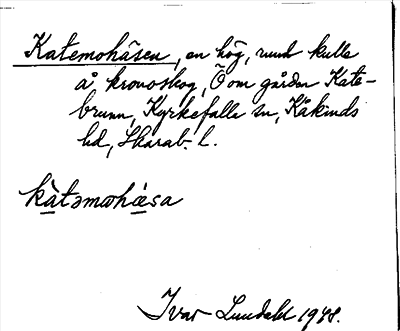 Katemohåsen, en hög, rund kulle
å kronoskog, Ö om gården Kate-
brunn, Kyrkefalla sn, Kåkinds
hd, Skarab. l.
kàtəmωhásα
Ivar Lundahl 1948.